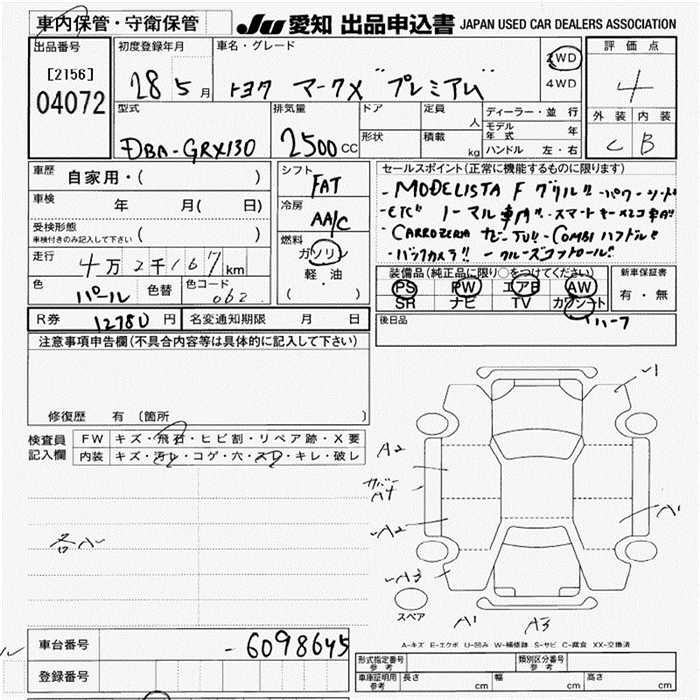 車内保管・守衛保管
JU 愛知 出品申込書 JAPAN USED CAR DEALERS ASSOCIATION
出品番号
[2156]
04072
初度登録年月
28 5月
車名・グレード
トヨタ マークX "プレミアム"
2WD
4WD
評価点
4
外装 内装
C B
型式
DBA-GRX130
排気量
2500 CC
ドア
形状
定員
人
積載
kg
ディーラー・並行
モデル年式 年
ハンドル 左・右
車歴 自家用・( )
車検 年 月( 日)
受検形態
車検付きのみ記入して下さい ( )
走行 4万2千167km
色 パール 色替 色コード 062
シフト
FAT
冷房
AA/C
燃料
ガソリン
軽・油
( )
セールスポイント(正常に機能するものに限ります)
-MODELISTA Fグリル!! -パワーシート
-ETC!! -スマートキー
-CARROZERIA ナビ・TV!! -COMBIハンドル
-バックカメラ!! -クルーズコントロール!!
装備品(純正品に限り○をつけてください)
PS PW エアB AW
SR ナビ TV カワシート
ハーフ
新車保証書
有・無
後日品
R券 12780円 名変通知期限 月 日
注意事項申告欄(不具合内容等は具体的に記入して下さい)
修復歴 有 (箇所 )
検査員記入欄
FW キズ・飛石・ヒビ割・リペア跡・X要
内装 キズ・汚レ・コゲ・穴・スレ・キレ・破レ
各A
A2
カバー A4
A2
A3
A1
A3
A1
スペア
A-キズ E-エクボ U-凹み W-補修跡 S-サビ C-腐食 XX-交換済
車台番号 -6098645
登録番号
形式指定番号 参考
類別区分番号 参考
車庫証明用 参考 長さ cm 幅 cm 高さ cm